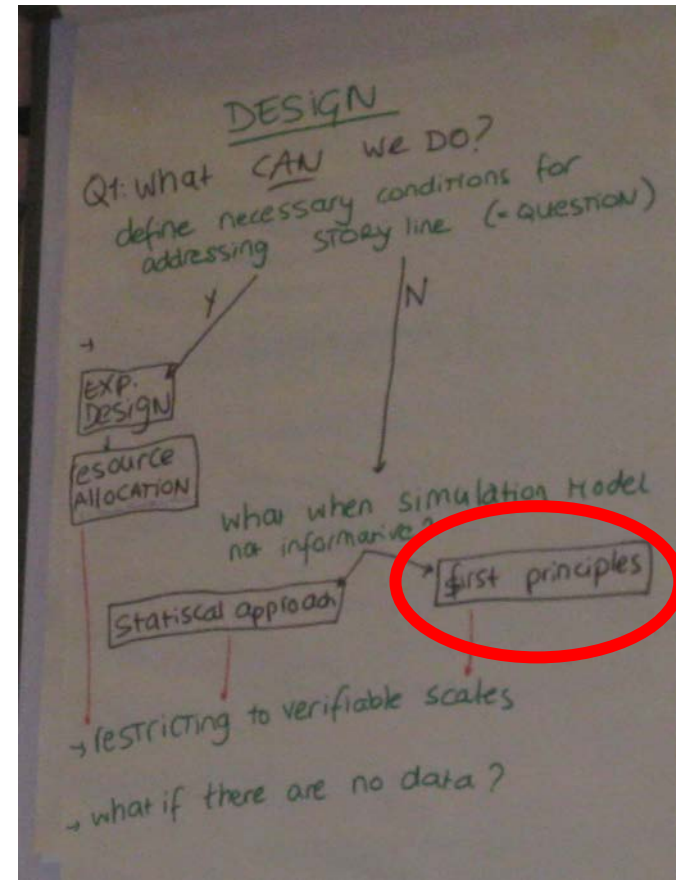 DESIGN
Q1: What CAN we DO?
define necessary conditions for
addressing STORY line (= QUESTION)
Y
N
→
EXP.
DESIGN
resource
AllOCATION
what when simulation Model
not informative?
Statiscal approach
first principles
→ restricting to verifiable scales
→ what if there are no data?